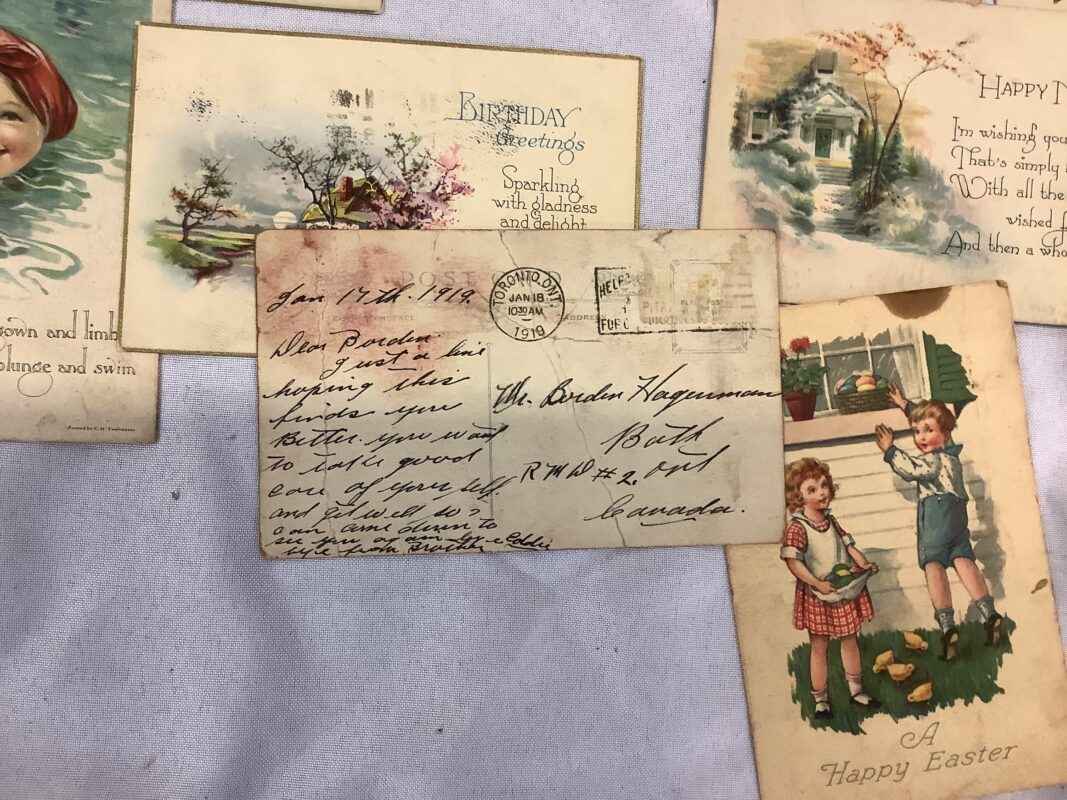 BIRTHDAY
Greetings
Sparkling
with gladness
and delight
HAPPY N
I'm wishing you
That's simply
With all the
wished f
And then a who
own and limb
plunge and swim
POST CARD
TORONTO, ONT.
JAN 18
10 30 AM
1919
HELP
FOR
ADDRESS
Jan 17th. 1919.
Dear Borden.
Just a line
hoping this
finds you
Better. you want
to take good
care of yourself.
and get well so I
can come down to
see you again
bye from Brother Eddie
Mr. Borden Hagerman
Bath
R M D #2. Ont
Canada.
A
Happy Easter